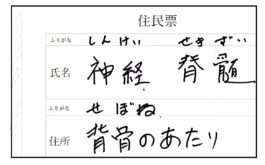 住民票
ふりがな しんけい せきずい
氏名 神経 脊髄
ふりがな せぼね
住所 背骨のあたり